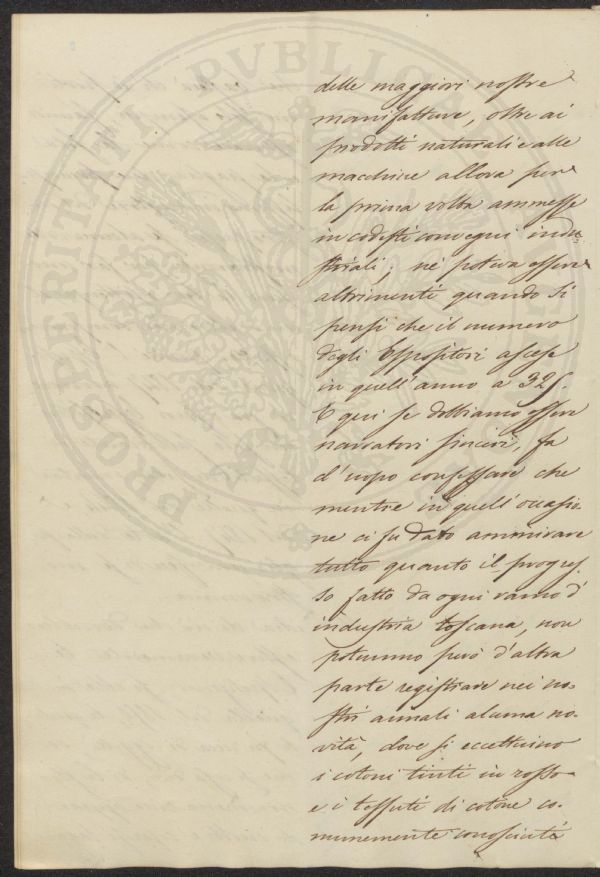 PRO PERITATI PVBLICAE
delle maggiori nostre
manifatture, oltre ai
prodotti naturali e alle
macchine allora per
la prima volta ammesse
in codesti convegni indu-
striali; nè poteva essere
altrimenti quando si
pensi che il numero
degli Espositori ascese
in quell'anno a 325.
E qui se dobbiamo essere
narratori sinceri, fa
d'uopo confessare che
mentre in quell'occasio-
ne ci fu dato ammirare
tutto quanto il progres-
so fatto da ogni ramo d'
industria toscana, non
potemmo però d'altra
parte registrare nei no-
stri annali alcuna no-
vità, dove si eccettuino
i cotoni tinti in rosso
e i tessuti di cotone co-
munemente conosciuti